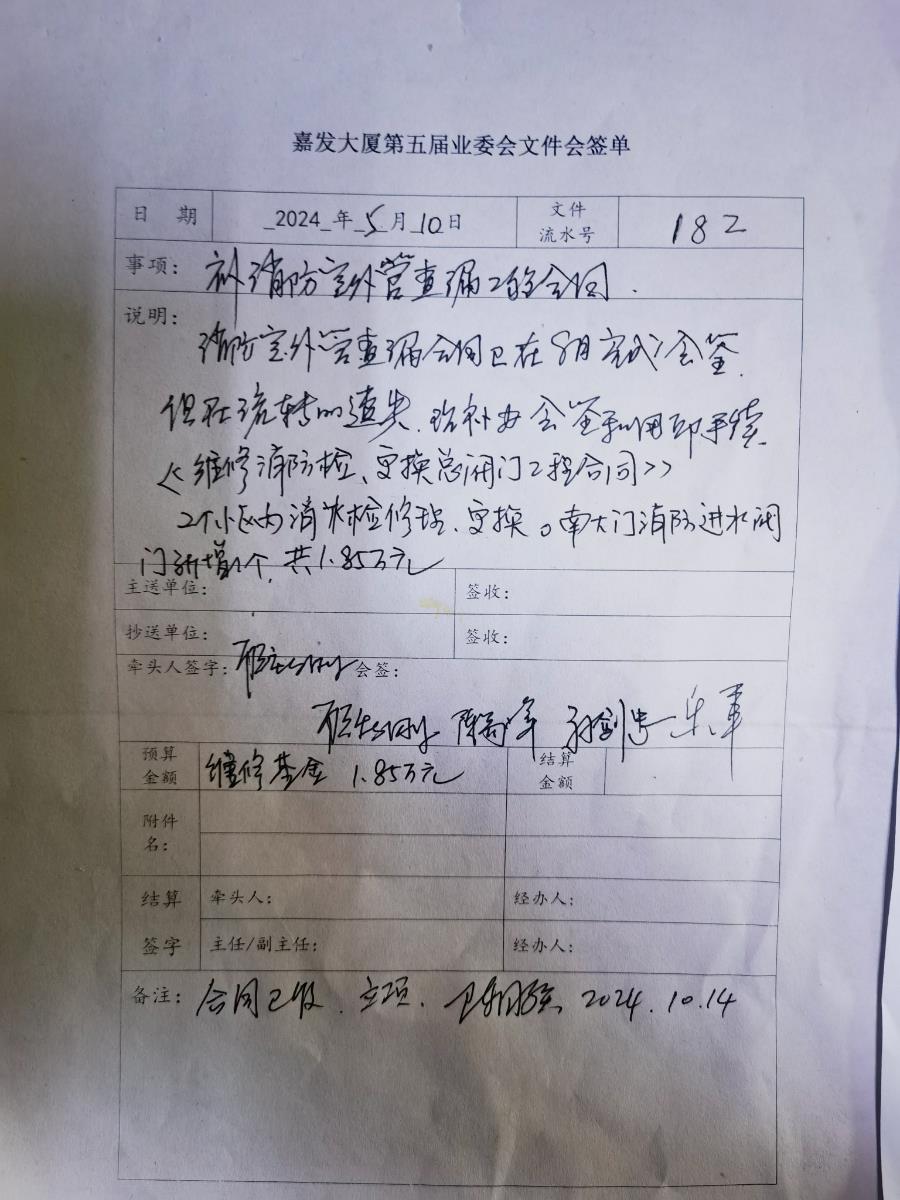 嘉发大厦第五届业委会文件会签单
日 期 2024 年 5 月 10 日 文件流水号 182
事项: 补消防室外管查漏工的合同.
说明:
消防室外管查漏合同已在8月完成会签.
但在流转时遗失.现补办会签和用印手续
《维修消防检、更换总闸门工程合同》
2个小区内消火检修理、更换。南大门消防进水闸
门新增1个,共1.85万元
主送单位: 签收:
抄送单位: 签收:
牵头人签字: 会签:
预算金额 维修基金 1.85万元 结算金额
附件名:
结算 牵头人: 经办人:
签字 主任/副主任: 经办人:
备注: 合同已收.立项. 2024.10.14